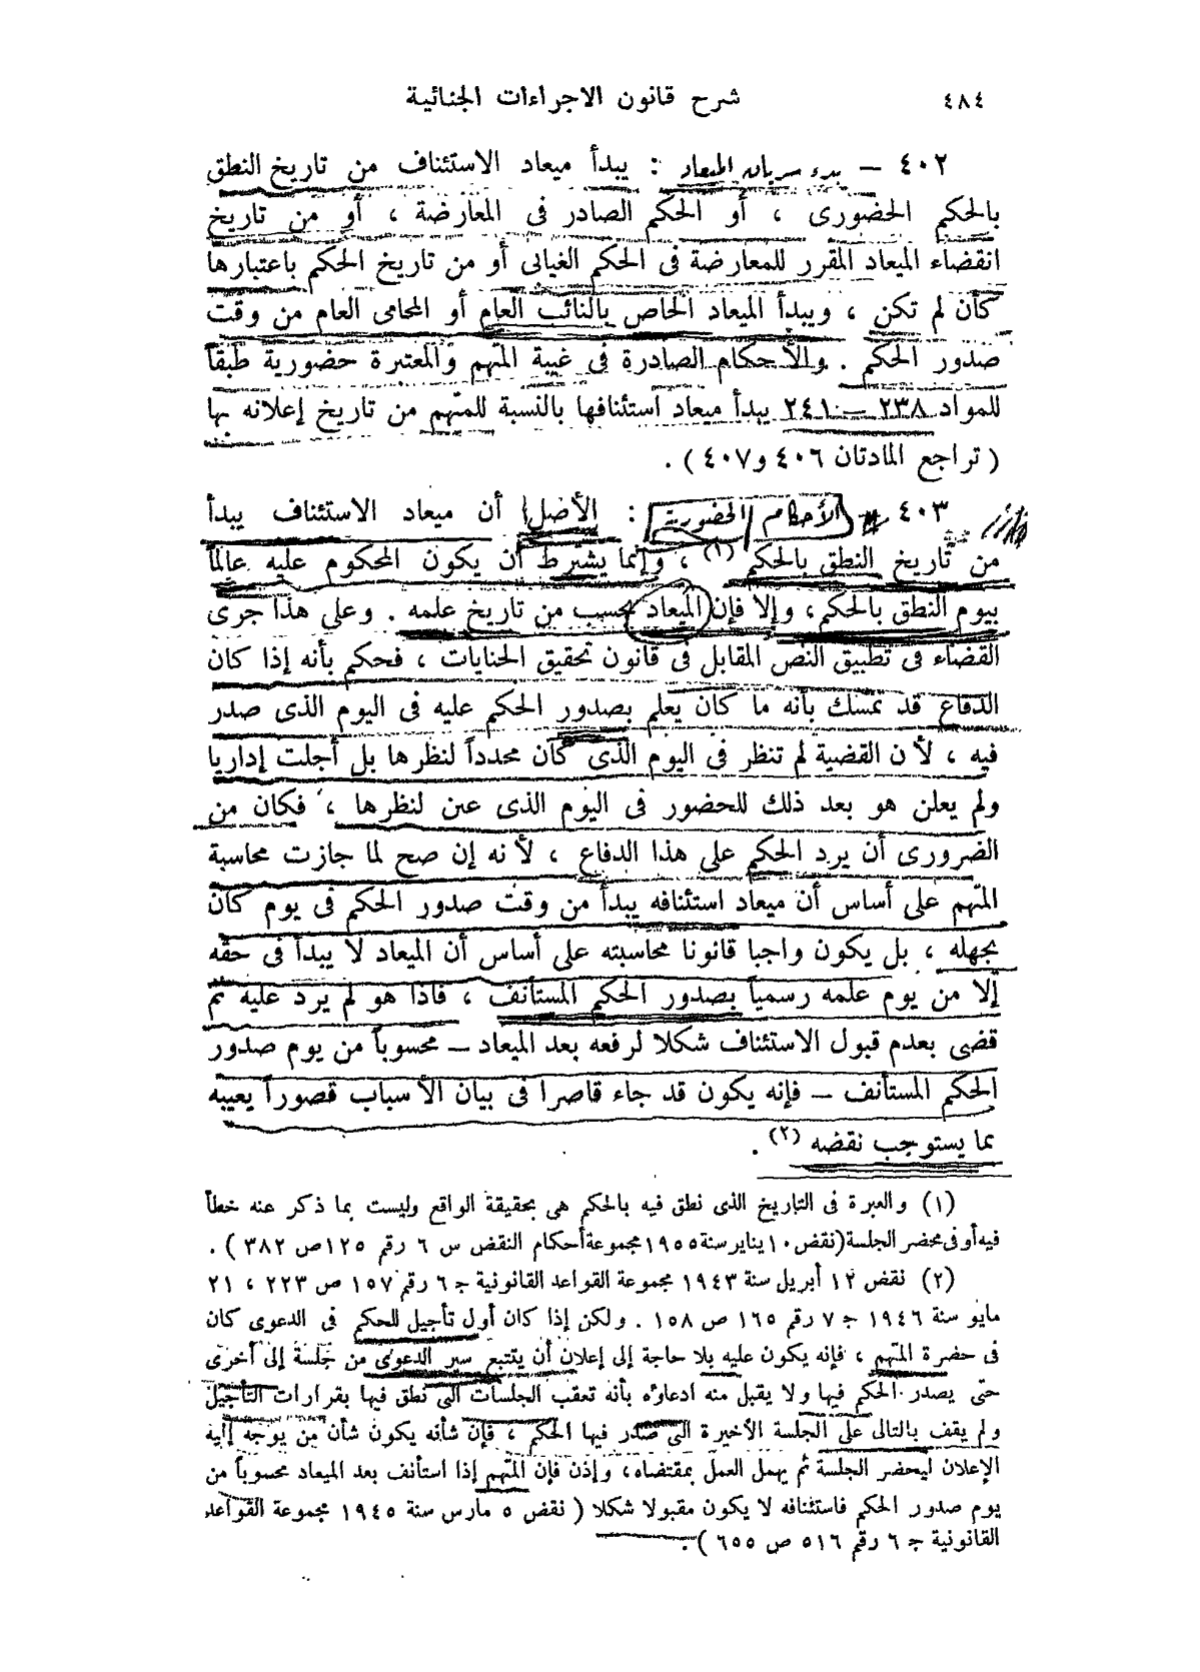 ٤٨٤
شرح قانون الاجراءات الجنائية
٤٠٢ — بدء سريان الميعاد : يبدأ ميعاد الاستئناف من تاريخ النطق
بالحكم الحضورى ، أو الحكم الصادر فى المعارضة ، أو من تاريخ
انقضاء الميعاد المقرر للمعارضة فى الحكم الغيابى أو من تاريخ الحكم باعتبارها
كأن لم تكن ، ويبدأ الميعاد الخاص بالنائب العام أو المحامى العام من وقت
صدور الحكم . والأحكام الصادرة فى غيبة المتهم والمعتبرة حضورية طبقاً
للمواد ٢٣٨ — ٢٤١ يبدأ ميعاد استئنافها بالنسبة للمتهم من تاريخ إعلانه بها
( تراجع المادتان ٤٠٦ و٤٠٧ ) .
٤٠٣ — الأحكام الحضورية : الأصل أن ميعاد الاستئناف يبدأ
من تاريخ النطق بالحكم (١) ، وإنما يشترط أن يكون المحكوم عليه عالماً
بيوم النطق بالحكم ، وإلا فإن الميعاد يحسب من تاريخ علمه . وعلى هذا جرى
القضاء فى تطبيق النص المقابل فى قانون تحقيق الجنايات ، فحكم بأنه إذا كان
الدفاع قد تمسك بأنه ما كان يعلم بصدور الحكم عليه فى اليوم الذى صدر
فيه ، لأن القضية لم تنظر فى اليوم الذى كان محدداً لنظرها بل أجلت إداريا
ولم يعلن هو بعد ذلك للحضور فى اليوم الذى عين لنظرها ، فكان من
الضرورى أن يرد الحكم على هذا الدفاع ، لأنه إن صح لما جازت محاسبة
المتهم على أساس أن ميعاد استئنافه يبدأ من وقت صدور الحكم فى يوم كان
يجهله ، بل يكون واجبا قانونا محاسبته على أساس أن الميعاد لا يبدأ فى حقه
إلا من يوم علمه رسمياً بصدور الحكم المستأنف ، فاذا هو لم يرد عليه ثم
قضى بعدم قبول الاستئناف شكلا لرفعه بعد الميعاد — محسوباً من يوم صدور
الحكم المستأنف — فإنه يكون قد جاء قاصرا فى بيان الأسباب قصوراً يعيبه
بما يستوجب نقضه (٢) .
(١) والعبرة فى التاريخ الذى نطق فيه بالحكم هى بحقيقة الواقع وليست بما ذكر عنه خطأ
فيه أو فى محضر الجلسة (نقض ١٠ يناير سنة ١٩٥٥ مجموعة أحكام النقض س ٦ رقم ١٢٥ ص ٣٨٢ ) .
(٢) نقض ١٢ أبريل سنة ١٩٤٣ مجموعة القواعد القانونية ج ٦ رقم ١٥٧ ص ٢٢٣ ، ٢١
مايو سنة ١٩٤٦ ج ٧ رقم ١٦٥ ص ١٥٨ . ولكن إذا كان أول تأجيل للحكم فى الدعوى كان
فى حضرة المتهم ، فإنه يكون عليه بلا حاجة إلى إعلان أن يتتبع سير الدعوى من جلسة إلى أخرى
حتى يصدر الحكم فيها ولا يقبل منه ادعاؤه بأنه تعقب الجلسات التى نطق فيها بقرارات التأجيل
ولم يقف بالتالى على الجلسة الأخيرة التى صدر فيها الحكم ، فإن شأنه يكون شأن من يوجه إليه
الإعلان ليحضر الجلسة ثم يهمل العمل بمقتضاه ، وإذن فإن المتهم إذا استأنف بعد الميعاد محسوباً من
يوم صدور الحكم فاستئنافه لا يكون مقبولا شكلا ( نقض ٥ مارس سنة ١٩٤٥ مجموعة القواعد
القانونية ج ٦ رقم ٥١٦ ص ٦٥٥ ) .